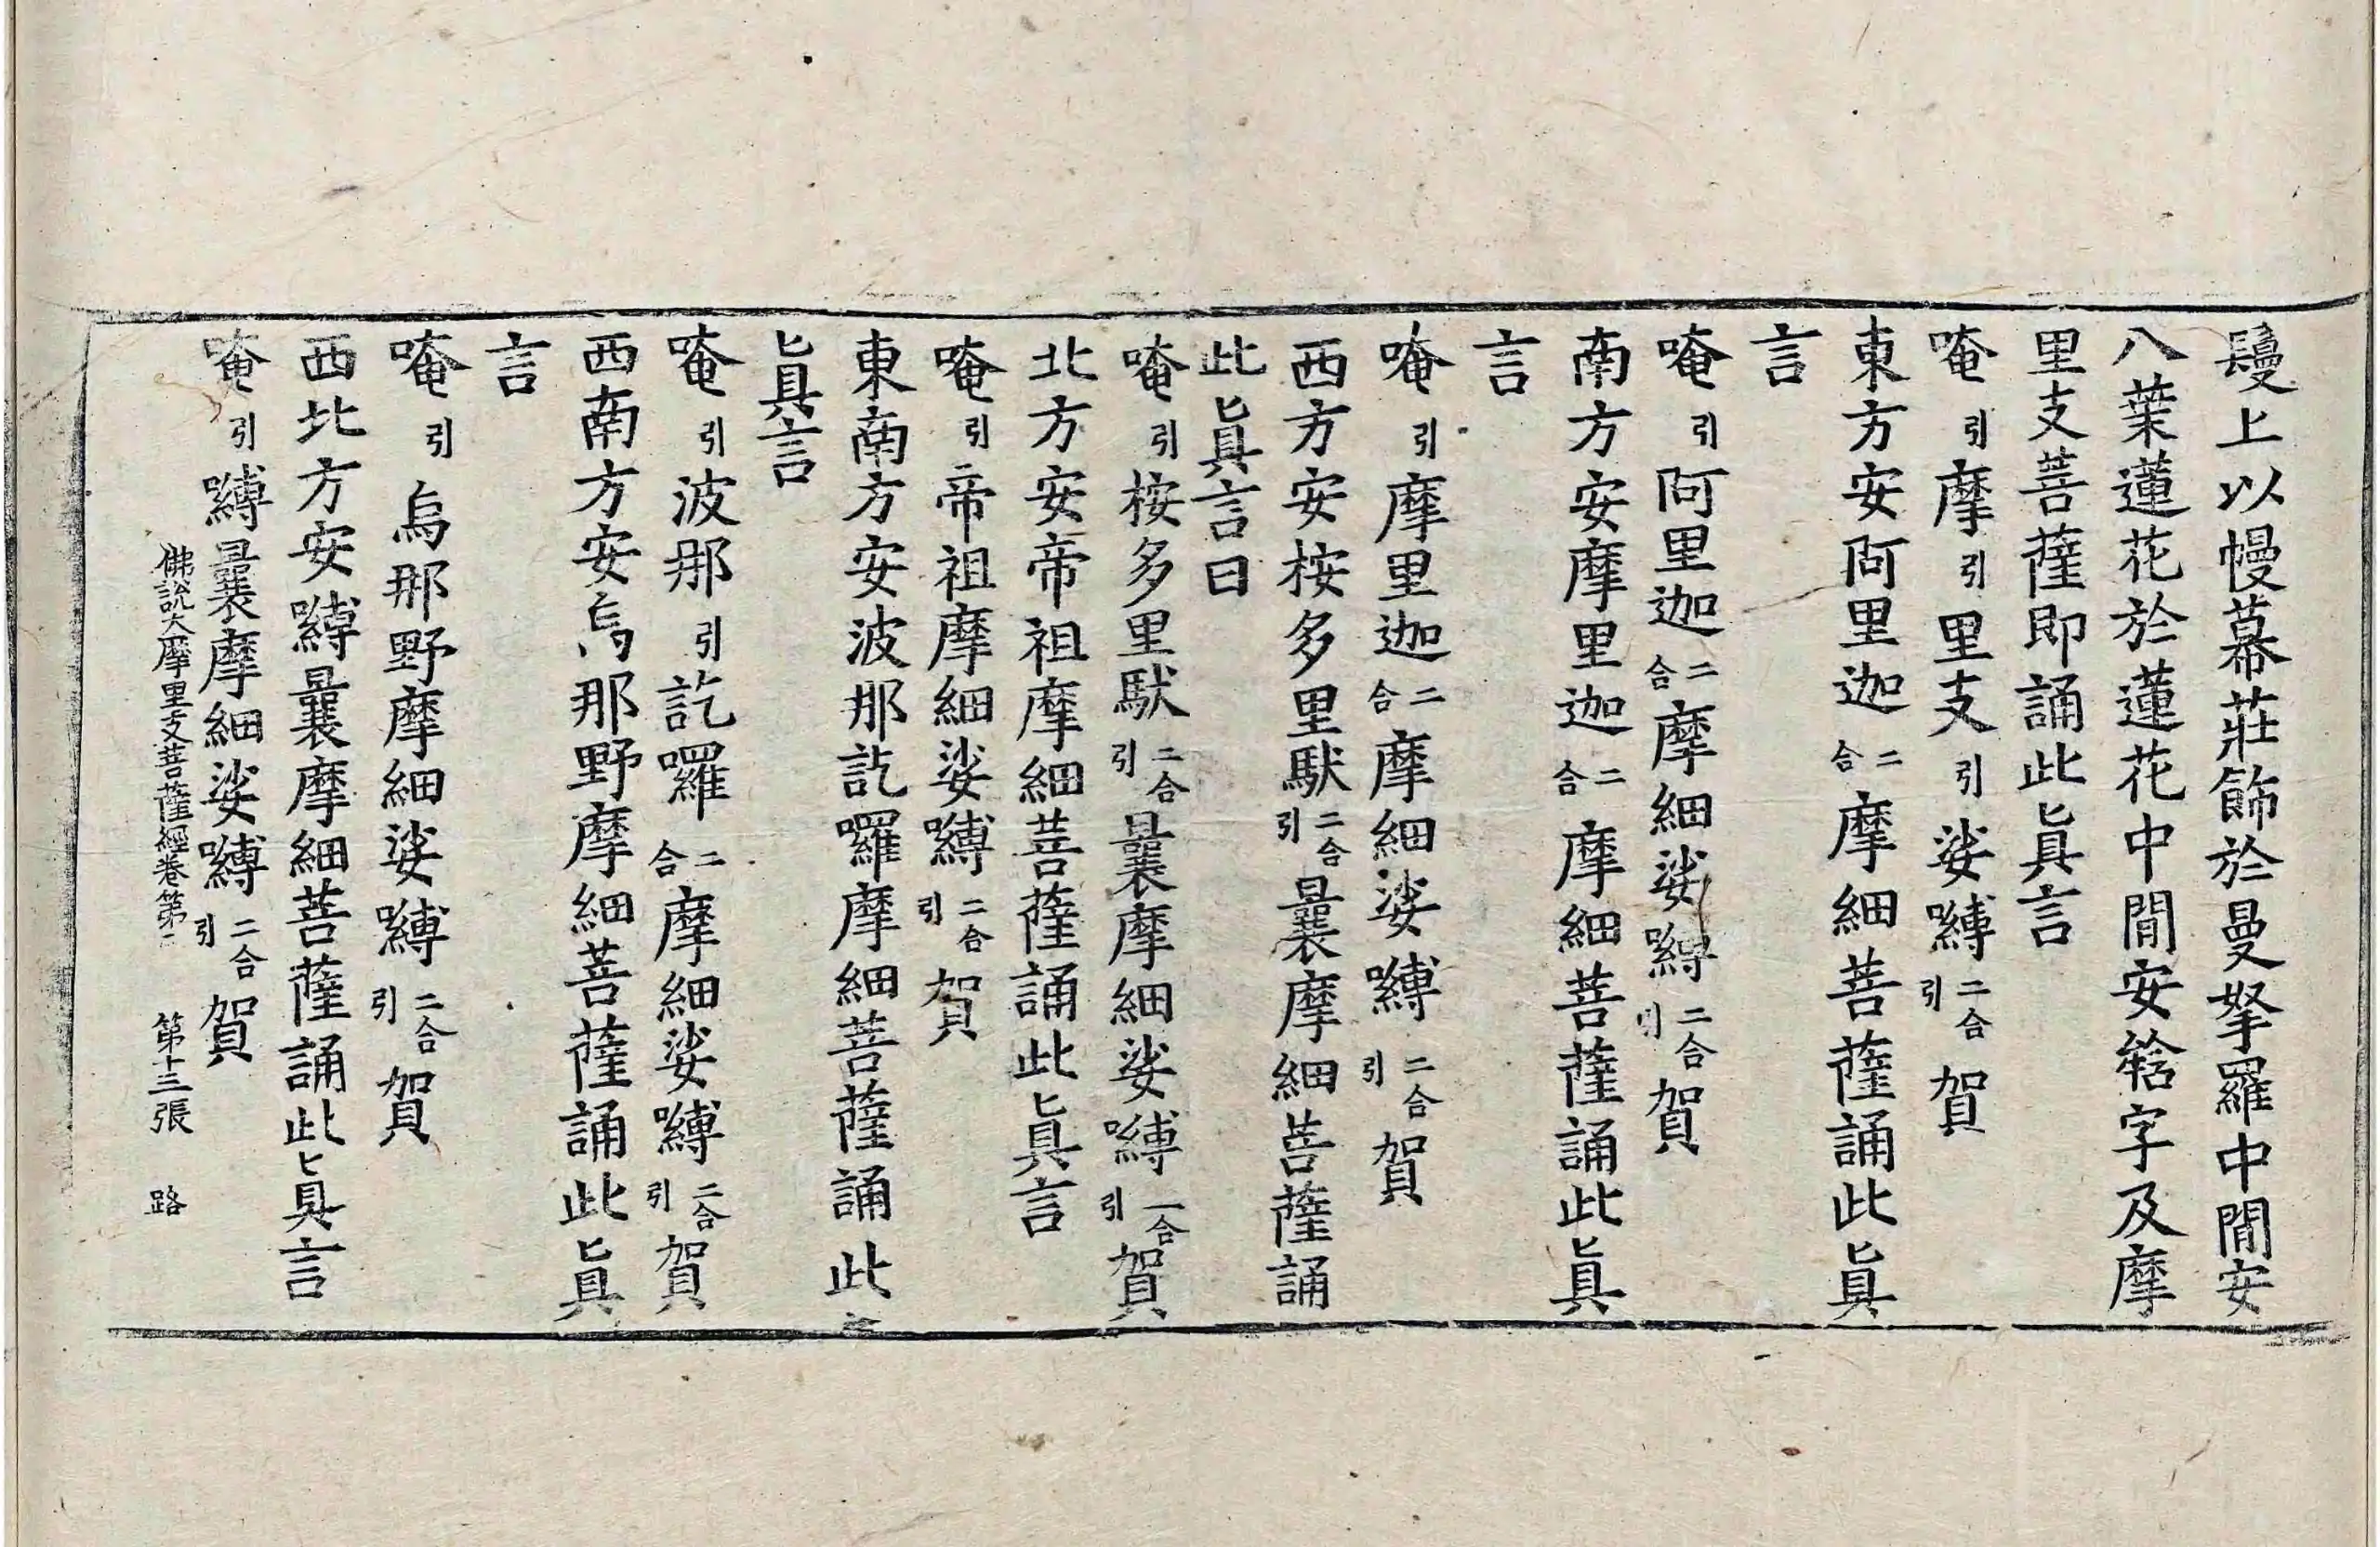 鬘上以幔幕莊飾於曼拏羅中間安
八葉蓮花於蓮花中間安𤚥字及摩
里支菩薩即誦此眞言
唵引摩引里支引娑嚩二合引賀
東方安阿里迦二合摩細菩薩誦此眞
言
唵引阿里迦二合摩細娑嚩二合引賀
南方安摩里迦二合摩細菩薩誦此眞
言
唵引摩里迦二合摩細娑嚩二合引賀
西方安桉多里馱二合引曩摩細菩薩誦
此眞言曰
唵引桉多里馱二合引曩摩細娑嚩二合引賀
北方安帝祖摩細菩薩誦此眞言
唵引帝祖摩細娑嚩二合引賀
東南方安波那訖囉摩細菩薩誦此
眞言
唵引波那引訖囉二合摩細娑嚩二合引賀
西南方安烏那野摩細菩薩誦此眞
言
唵引烏那野摩細娑嚩二合引賀
西北方安嚩曩摩細菩薩誦此眞言
唵引嚩曩摩細娑嚩二合引賀
佛說大摩里支菩薩經卷第二 第十三張 路